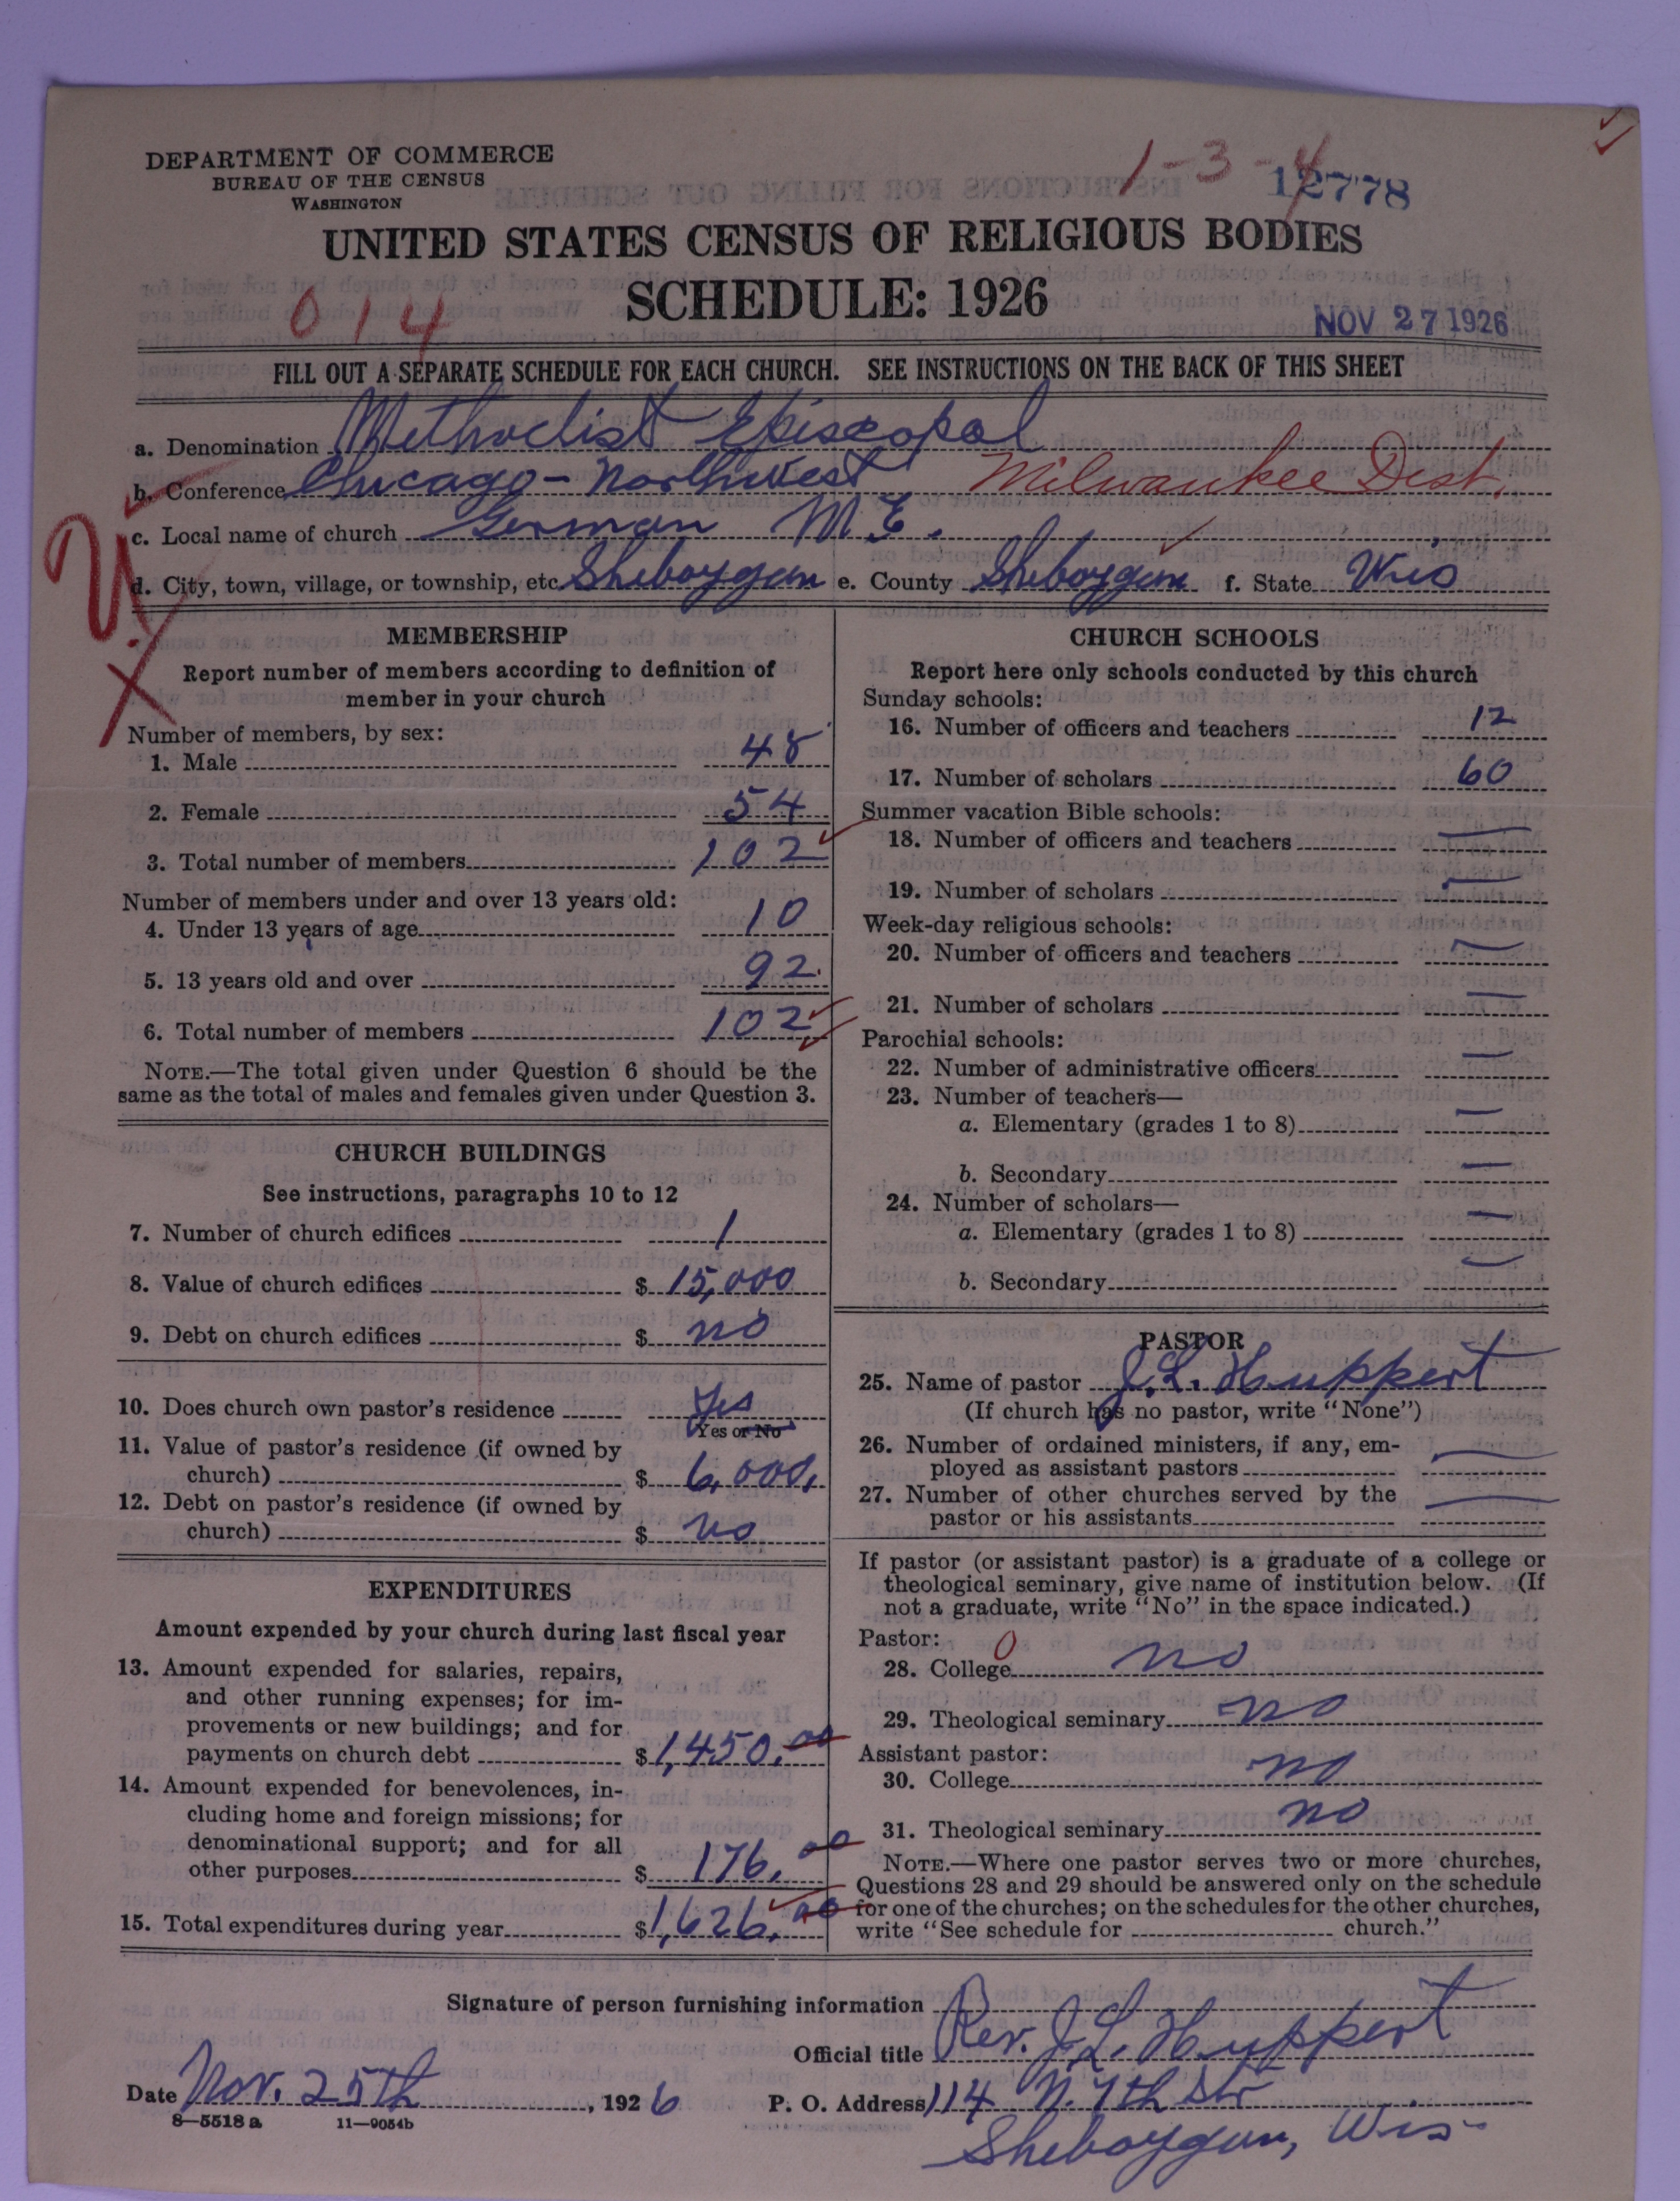 DEPARTMENT OF COMMERCE
BUREAU OF THE CENSUS
WASHINGTON
1-3-4
12778
UNITED STATES CENSUS OF RELIGIOUS BODIES
SCHEDULE: 1926
014
NOV 27 1926
FILL OUT A SEPARATE SCHEDULE FOR EACH CHURCH. SEE INSTRUCTIONS ON THE BACK OF THIS SHEET
a. Denomination Methodist Episcopal
b. Conference Chicago-Northwest Milwaukee Dist.
c. Local name of church German M. E.
d. City, town, village, or township, etc. Sheboygan e. County Sheboygan f. State Wis
MEMBERSHIP
Report number of members according to definition of
member in your church
Number of members, by sex:
1. Male 48
2. Female 54
3. Total number of members 102
Number of members under and over 13 years old:
4. Under 13 years of age 10
5. 13 years old and over 92
6. Total number of members 102
NOTE.—The total given under Question 6 should be the
same as the total of males and females given under Question 3.
CHURCH BUILDINGS
See instructions, paragraphs 10 to 12
7. Number of church edifices 1
8. Value of church edifices $ 15,000
9. Debt on church edifices $ no
10. Does church own pastor's residence Yes
Yes or No
11. Value of pastor's residence (if owned by
church) $ 6,000.
12. Debt on pastor's residence (if owned by
church) $ no
EXPENDITURES
Amount expended by your church during last fiscal year
13. Amount expended for salaries, repairs,
and other running expenses; for im-
provements or new buildings; and for
payments on church debt $ 1,450.00
14. Amount expended for benevolences, in-
cluding home and foreign missions; for
denominational support; and for all
other purposes $ 176.00
15. Total expenditures during year $ 1,626.00
CHURCH SCHOOLS
Report here only schools conducted by this church
Sunday schools:
16. Number of officers and teachers 12
17. Number of scholars 60
Summer vacation Bible schools:
18. Number of officers and teachers —
19. Number of scholars —
Week-day religious schools:
20. Number of officers and teachers —
21. Number of scholars —
Parochial schools:
22. Number of administrative officers —
23. Number of teachers—
a. Elementary (grades 1 to 8) —
b. Secondary —
24. Number of scholars—
a. Elementary (grades 1 to 8) —
b. Secondary —
PASTOR
25. Name of pastor J. L. Huppert
(If church has no pastor, write "None")
26. Number of ordained ministers, if any, em-
ployed as assistant pastors —
27. Number of other churches served by the
pastor or his assistants —
If pastor (or assistant pastor) is a graduate of a college or
theological seminary, give name of institution below. (If
not a graduate, write "No" in the space indicated.)
Pastor: 0
28. College no
29. Theological seminary no
Assistant pastor:
30. College no
31. Theological seminary no
NOTE.—Where one pastor serves two or more churches,
Questions 28 and 29 should be answered only on the schedule
for one of the churches; on the schedules for the other churches,
write "See schedule for church."
Signature of person furnishing information
Official title Rev. J. L. Huppert
Date Nov. 25th, 1926 P. O. Address 114 N. 7th Str
8—5518 a 11—9054b
Sheboygan, Wis